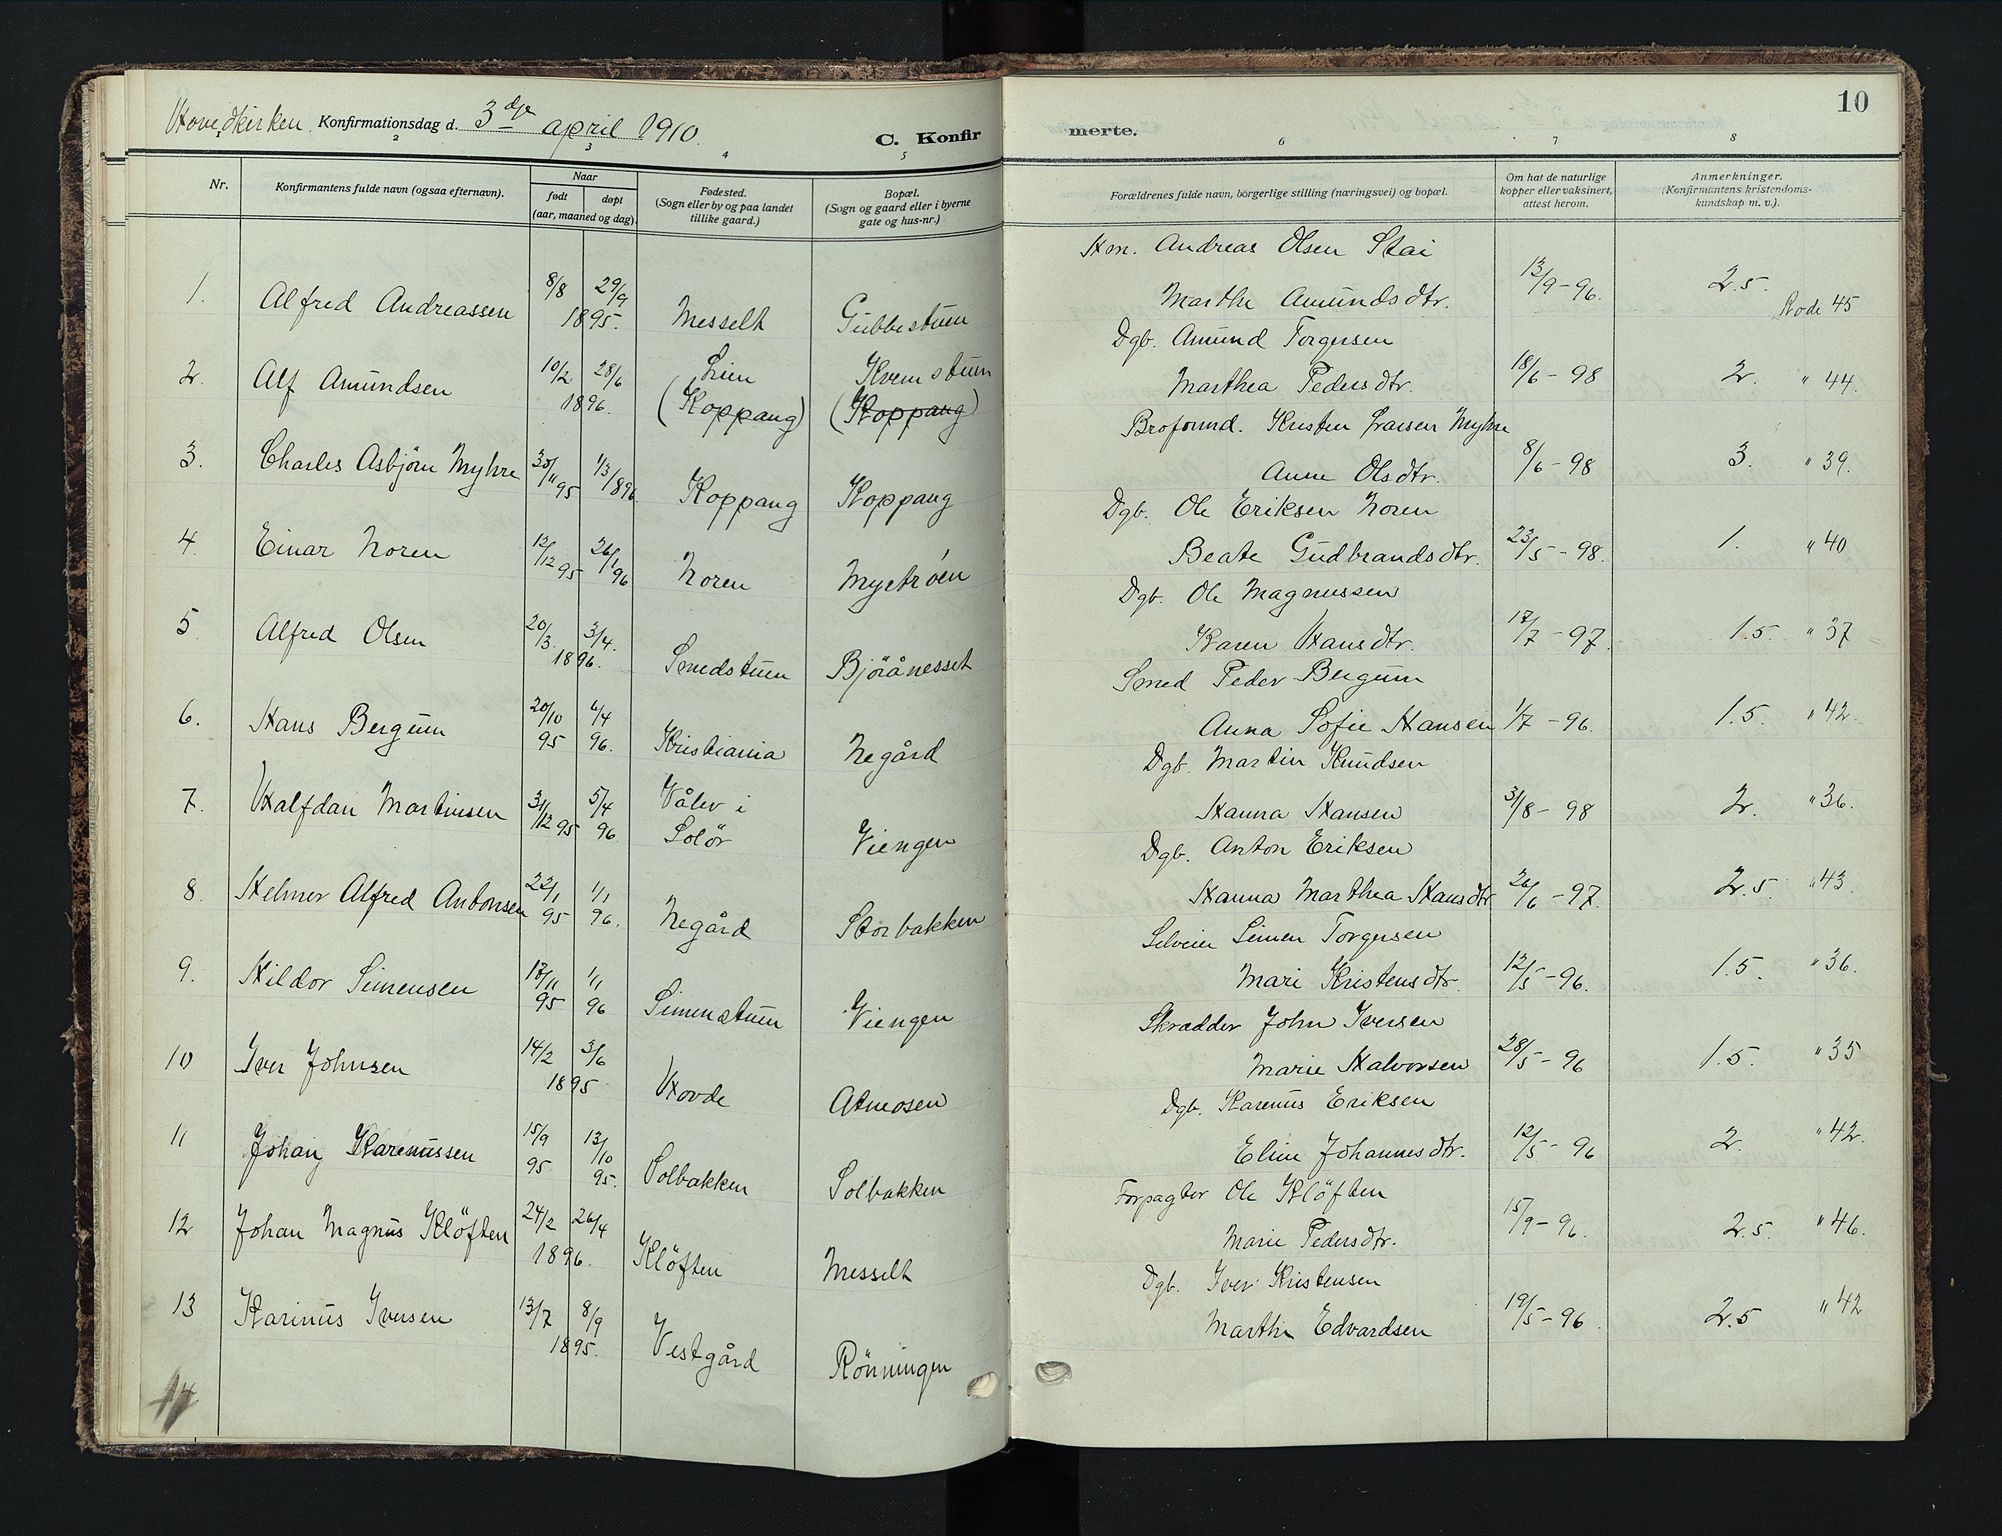 Hovedkirken Konfirmationsdag d. 3dje april 1910.
C. Konfir
merte.
10
1 2 3 4 5 6 7 8
Nr.
Konfirmantens fulde navn (ogsaa efternavn).
Naar
født døpt
(aar, maaned og dag).
Fødested.
(Sogn eller by og paa landet
tillike gaard.)
Bopæl.
(Sogn og gaard eller i byerne
gate og hus-nr.)
Forældrenes fulde navn, borgerlige stilling (næringsvei) og bopæl.
Om hat de naturlige
kopper eller vaksinert,
attest herom.
Anmerkninger.
(Konfirmantens kristendoms-
kundskap m. v.).
Hm. Andreas Olsen Stai
1. Alfred Andreassen 8/8 29/9 1895. Messelt Gubbestuen Marthe Amundsdtr. 13/9-96. 2.5. Rode 45
Dgb. Amund Torgersen
2. Alf Amundsen 10/2 28/6 1896. Lien (Koppang) Kvernstuen (Koppang) Marthea Pedersdtr. 18/6-98 2. " 44.
Broformd. Kristen Larsen Myhre
3. Charles Asbjørn Myhre 30/11 95 1/3 1896. Koppang Koppang Anne Olsdtr. 8/6-98 3. " 39.
Dgb. Ole Eriksen Noren
4. Einar Noren 12/12 95 26/1 96 Noren Myetrøen Beate Gudbrandsdtr. 23/5-98. 1. " 40
Dgb. Ole Magnussen
5. Alfred Olsen 20/3. 3/4. 1896. Smedstuen Bjøränesset Karen Hansdtr. 17/7-97. 1.5. " 37
Smed Peder Bergum
6. Hans Bergum 20/10 95 6/4 96. Kristiania Negård Anna Sofie Hansen 1/7-96. 1.5. " 42.
Dgb. Martin Knudsen
7. Halfdan Martinsen 31/12 95 5/4 96 Våler i Solør Viengen Hanna Hansen 31/8-98 2. " 36.
Dgb. Anton Eriksen
8. Helmer Alfred Antonsen 22/1 95 1/1 96. Negård Storbakken Hanna Marthea Hansdtr 26/6-97. 2.5 " 43.
Selveier Simen Torgersen
9. Hildor Simensen 13/11 95 1/1 96 Simenstuen Viengen Mari Kristensdtr. 12/5-96. 1.5. " 36.
Skrædder John Iversen
10 Iver Johnsen 14/2 3/6 1895. Hovde Atmosen Marie Halvorsen 28/5-96 1.5. " 35
Dgb. Karenus Eriksen
11 Johan Karenussen 15/9 95. 13/10 95. Solbakken Solbakken Eline Johannesdtr. 12/5-96 2. " 42.
Forpagter Ole Kløften
12 Johan Magnus Kløften 24/2 26/4 1896. Kløften Messelt Marie Pedersdtr. 15/9-96. 2.5. " 46.
Dgb. Iver Kristensen
13 Karinus Iversen 13/7 8/9 1895. Vestgård Rönningen Marthe Edvardsen 19/5-96. 2.5 " 42
14